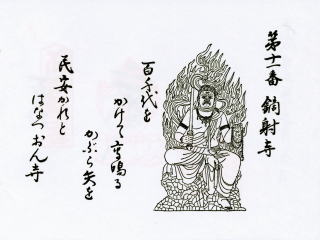 第十一番 鏑射寺
百千代を
かけて高鳴る
かぶら矢を
民安かれと
はなつおん寺